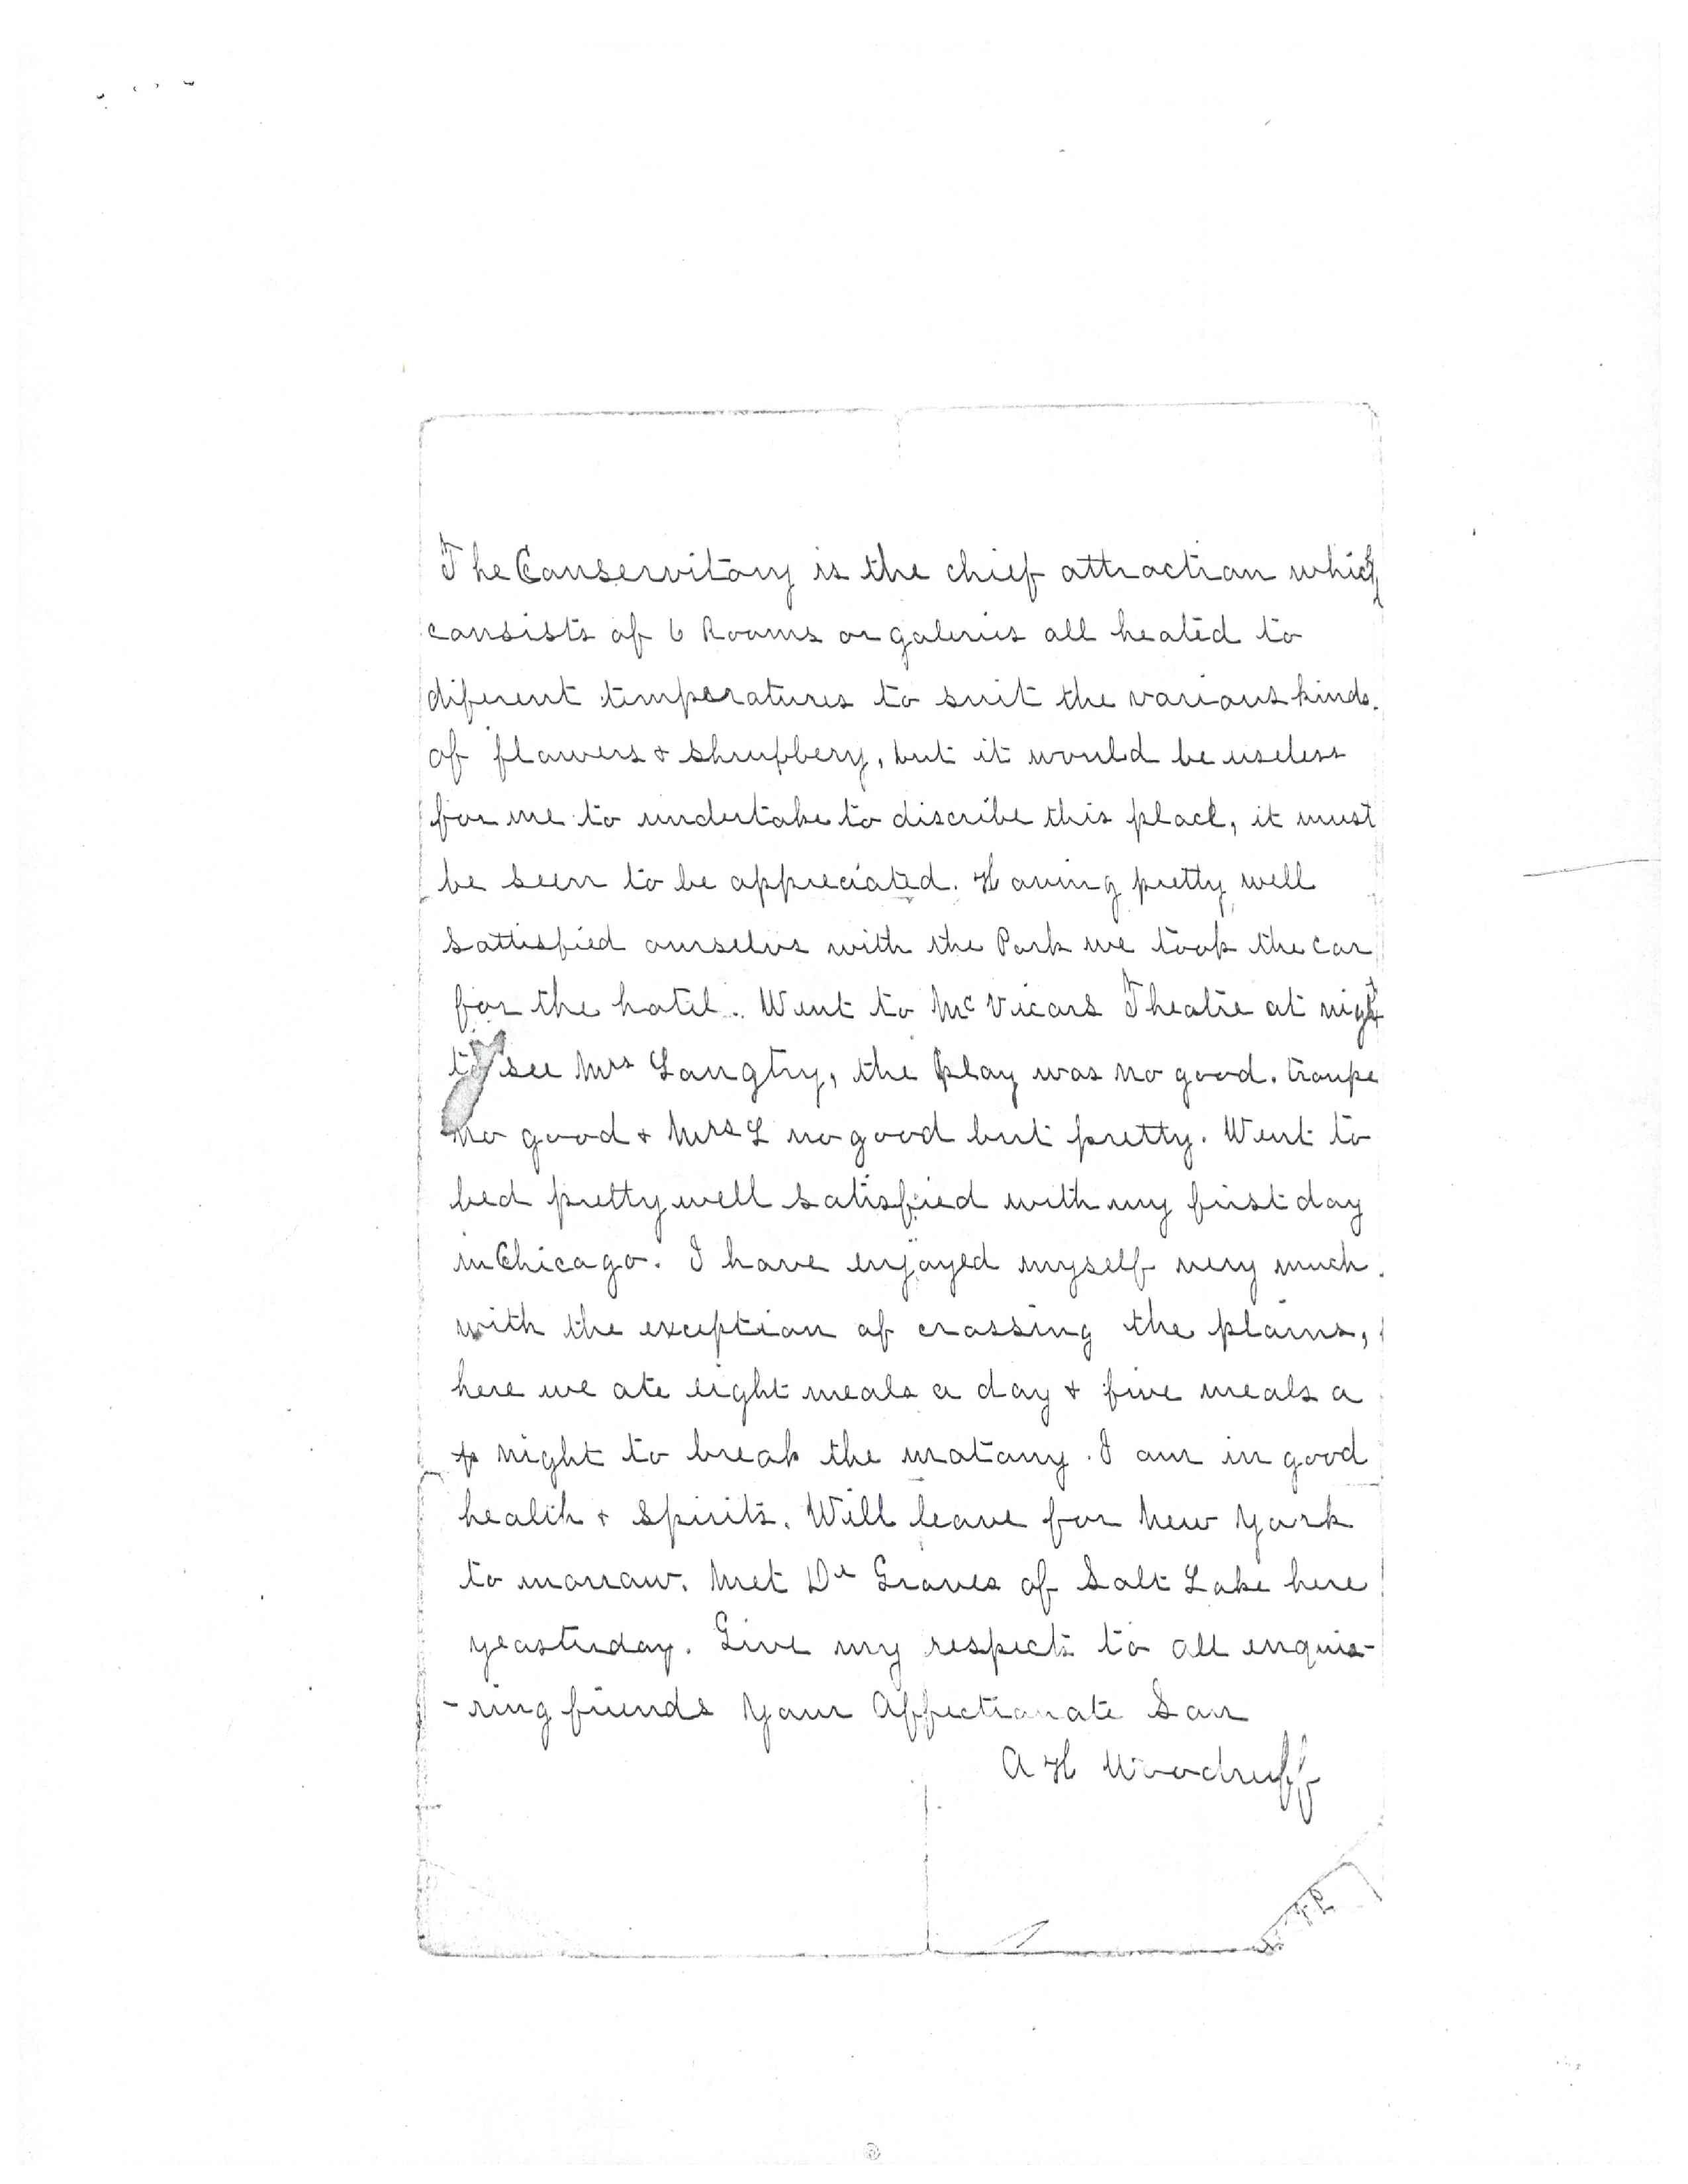 The Conservitory is the chief attraction which
consists of 6 Rooms or galeries all heated to
diferent temperatures to suit the various kinds.
of flowers & shrubbery, but it would be useless
for me to undertake to discribe this place, it must
be seen to be appreciated. Having pretty well
sattisfied ourselvs with the Park we took the car
for the hotel. Went to McVicars Theatre at night
to see Mrs Langtry, the play was no good. troupe
no good & Mrs L no good but pretty. Went to
bed pretty well satisfied with my first day
in Chicago. I have enjoyed myself very much
with the exception of crossing the plains,
here we ate eight meals a day & five meals a
night to break the motony. I am in good
health & spirits. Will leave for New York
to morrow. Met Dr Graves of Salt Lake here
yeasterday. Give my respects to all enquie-
-ring friends Your Affectionate Son
A H Woodruff